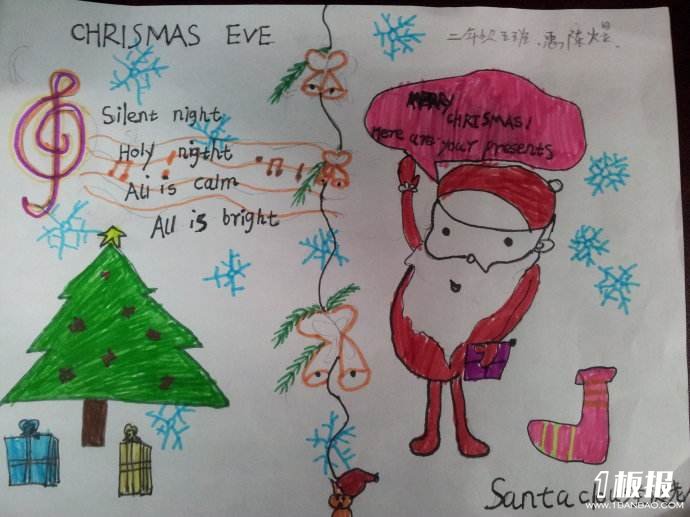 CHRISMAS EVE
二年级五班 惠陈
Silent night
Holy night
All is calm
All is bright
MERRY
CHRISMAS!
Here are your presents
Santa clau
1板报
WWW.1BANBAO.COM